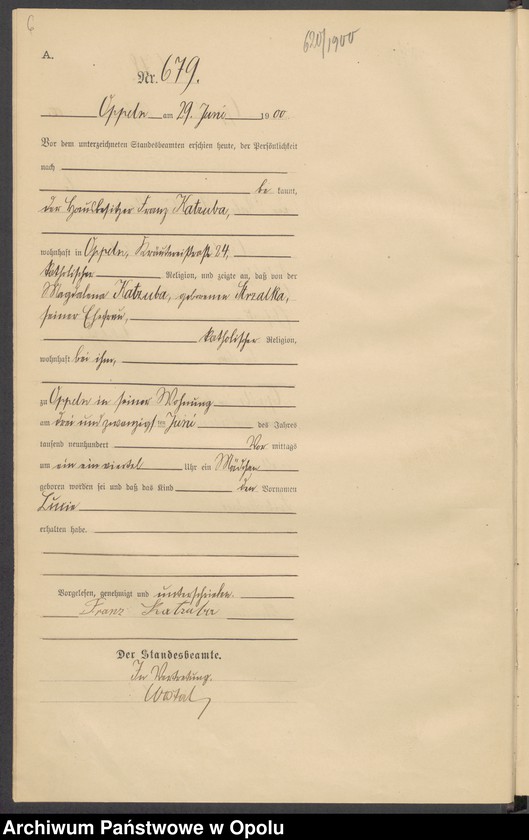 6
620/1900
A.
Nr. 679.
Oppeln am 29. Juni 1900
Vor dem unterzeichneten Standesbeamten erschien heute, der Persönlichkeit
nach
be kannt,
der Hausbesitzer Franz Katzuba,
wohnhaft in Oppeln, 24,
katholischer Religion, und zeigte an, daß von der
Magdalena Katzuba, geborenen Strzalka,
seiner Ehefrau,
katholischer Religion,
wohnhaft bei ihm,
zu Oppeln in seiner Wohnung
am drei und zwanzigsten Juni des Jahres
tausend neunhundert Vor mittags
um ein einviertel Uhr ein Mädchen
geboren worden sei und daß das Kind den Vornamen
Lucie
erhalten habe.
Vorgelesen, genehmigt und unterschrieben.
Franz Katzuba
Der Standesbeamte.
In Vertretung.
Archiwum Państwowe w Opolu